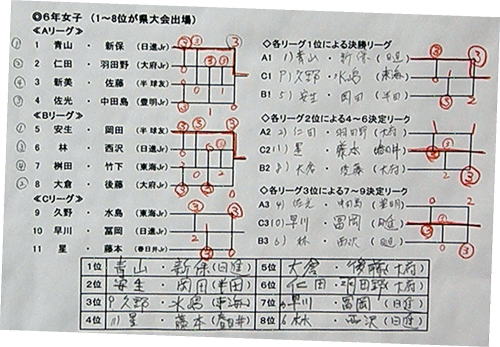 ◎6年女子 (1~8位が県大会出場)
≪Aリーグ≫
① 1 青山 ・ 新保 (日進Jr)
② 2 仁田 ・ 羽田野 (大府Jr)
④ 3 新美 ・ 佐藤 (半球友)
③ 4 佐光 ・ 中田島 (豊明Jr)
≪Bリーグ≫
① 5 安生 ・ 岡田 (半球友)
③ 6 林 ・ 西沢 (日進Jr)
④ 7 桝田 ・ 竹下 (東海Jr)
② 8 大倉 ・ 後藤 (大府Jr)
≪Cリーグ≫
9 久野 ・ 水島 (東海Jr)
10 早川 ・ 冨岡 (日進Jr)
11 星 ・ 藤本 (春日井Jr)
◇各リーグ1位による決勝リーグ
A1 1) 青山 ・ 新保 (日進)
C1 9) 久野 ・ 水島 (東海)
B1 5) 安生 ・ 岡田 (半田)
◇各リーグ2位による4~6決定リーグ
A2 2) 仁田 ・ 羽田野 (大府)
C2 11) 星 ・ 藤本 (春日井)
B2 8) 大倉 ・ 後藤 (大府)
◇各リーグ3位による7~9決定リーグ
A3 4) 佐光 ・ 中田島 (豊明)
C3 10) 早川 ・ 冨岡 (日進)
B3 6) 林 ・ 西沢 (日進)
1位 青山 ・ 新保 (日進) 5位 大倉 ・ 後藤 (大府)
2位 安生 ・ 岡田 (半田) 6位 仁田 ・ 羽田野 (大府)
3位 9 久野 ・ 水島 (東海) 7位 早川 ・ 冨岡 (日進)
4位 11) 星 ・ 藤本 (春日井) 8位 6 林 ・ 西沢 (日進)